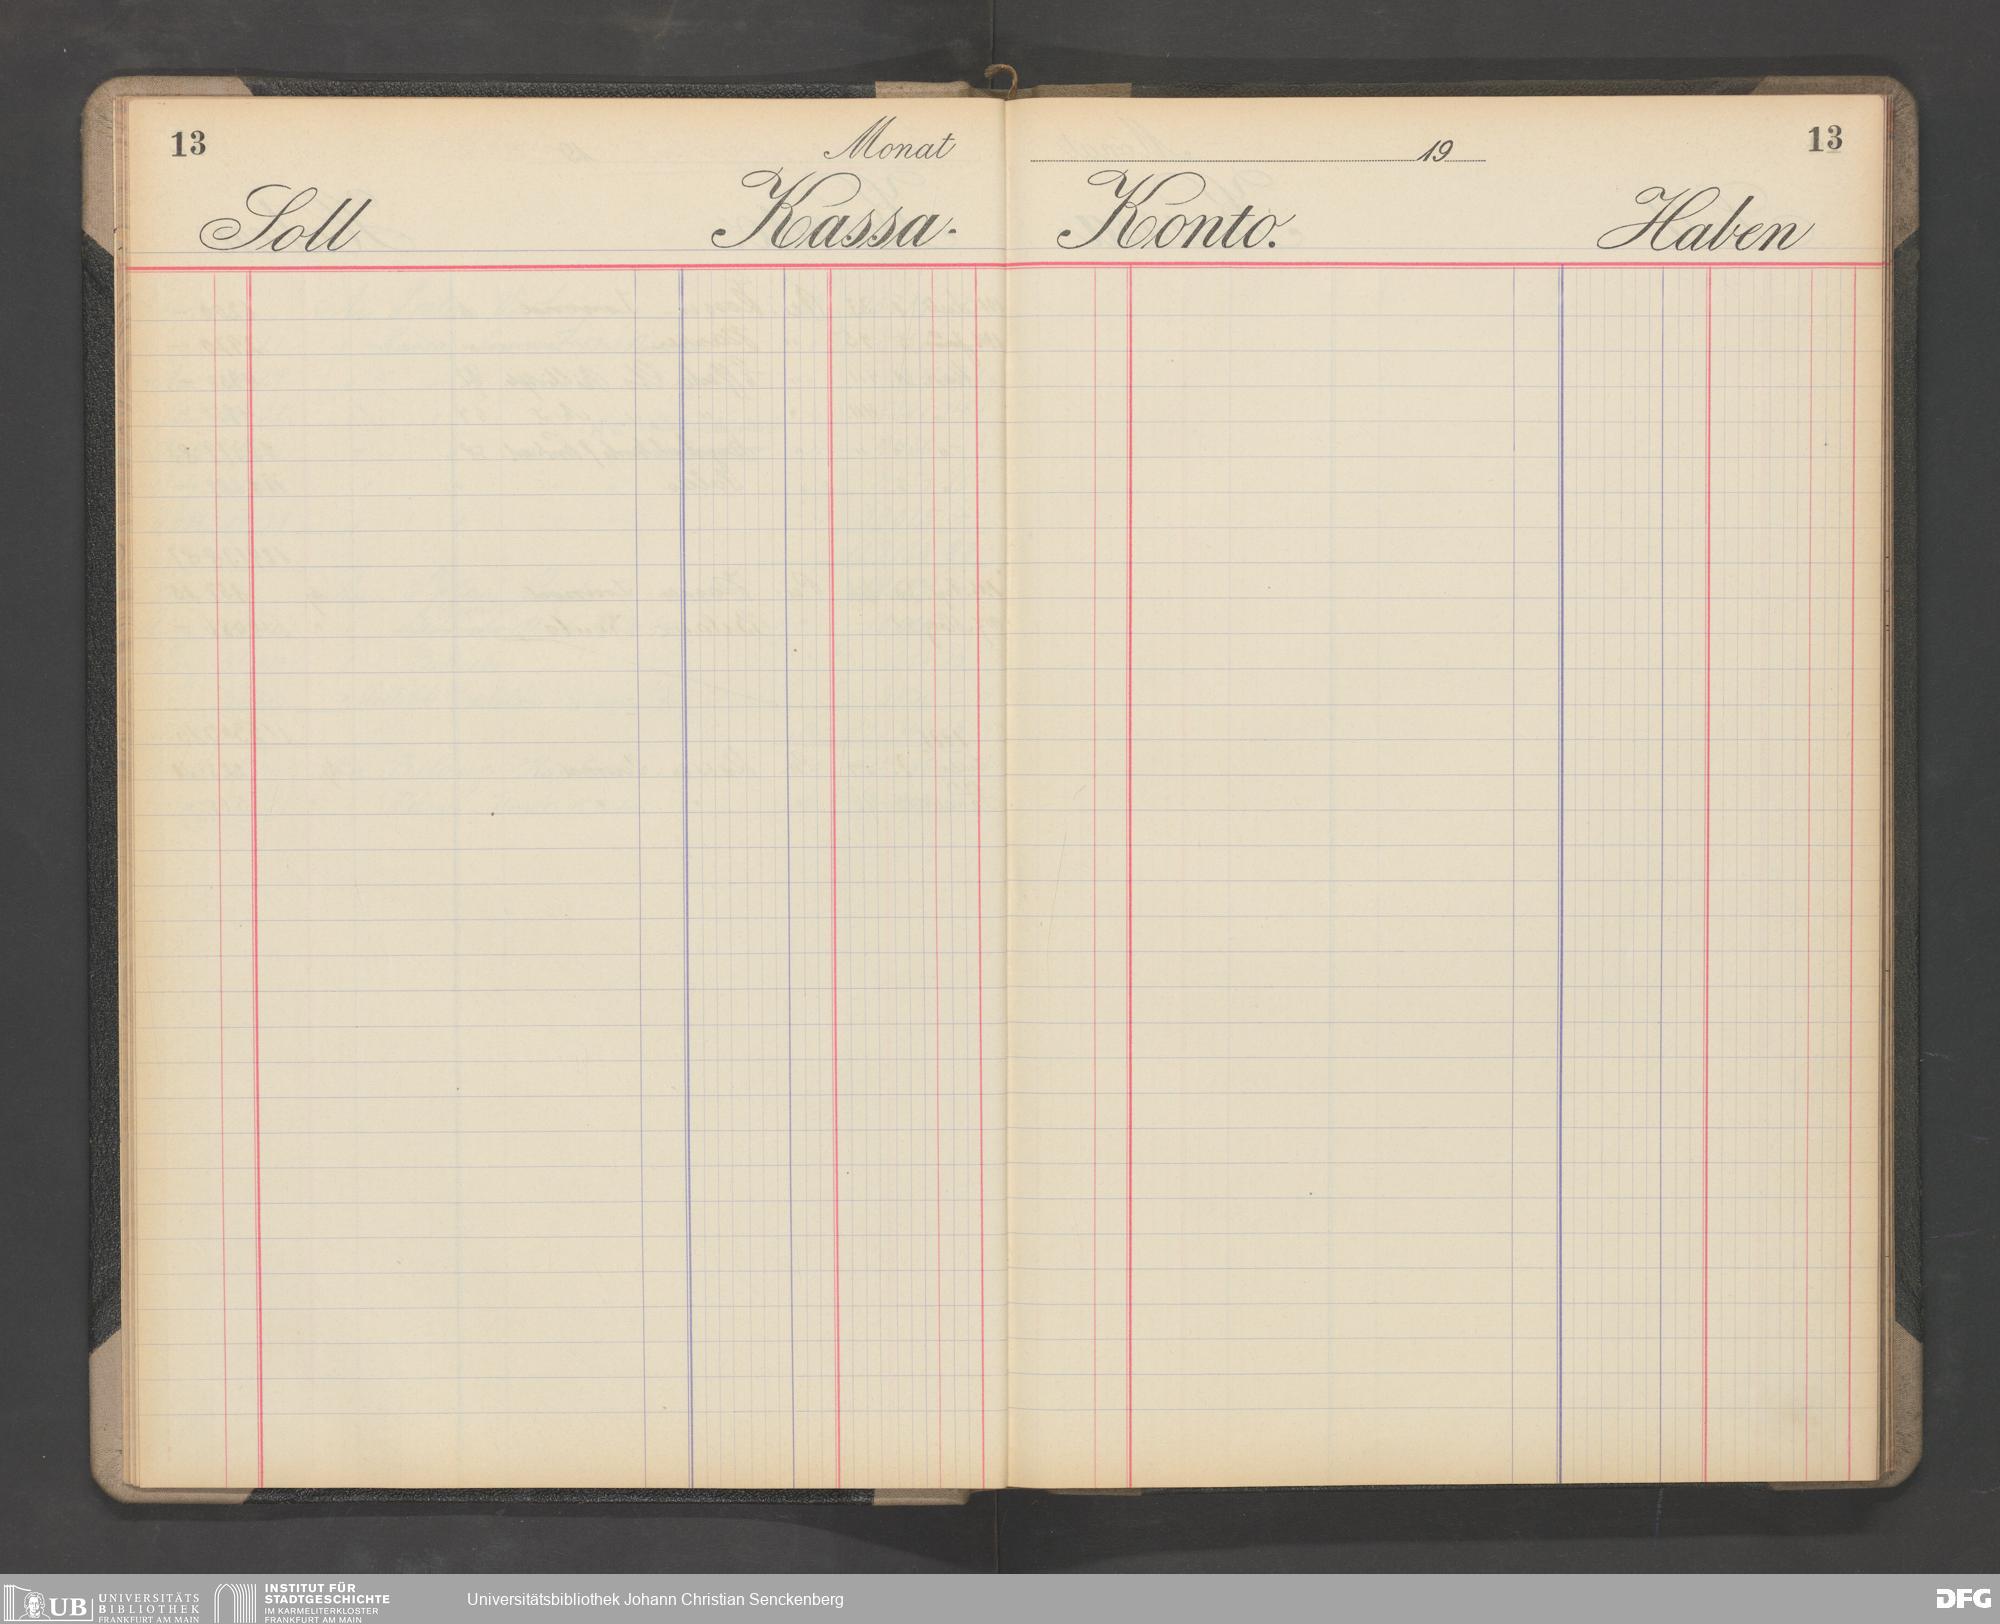 13 Monat 19 13
Soll Kassa- Konto. Haben
UB UNIVERSITÄTS
BIBLIOTHEK
FRANKFURT AM MAIN
INSTITUT FÜR
STADTGESCHICHTE
IM KARMELITERKLOSTER
FRANKFURT AM MAIN
Universitätsbibliothek Johann Christian Senckenberg
DFG